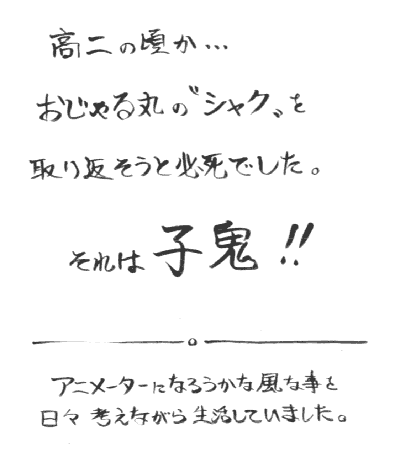 高二の頃か…
おじゃる丸の〝シャク〟を
取り返そうと必死でした。
それは 子鬼!!
アニメーターになろうかな風な事を
日々 考えながら 生活していました。